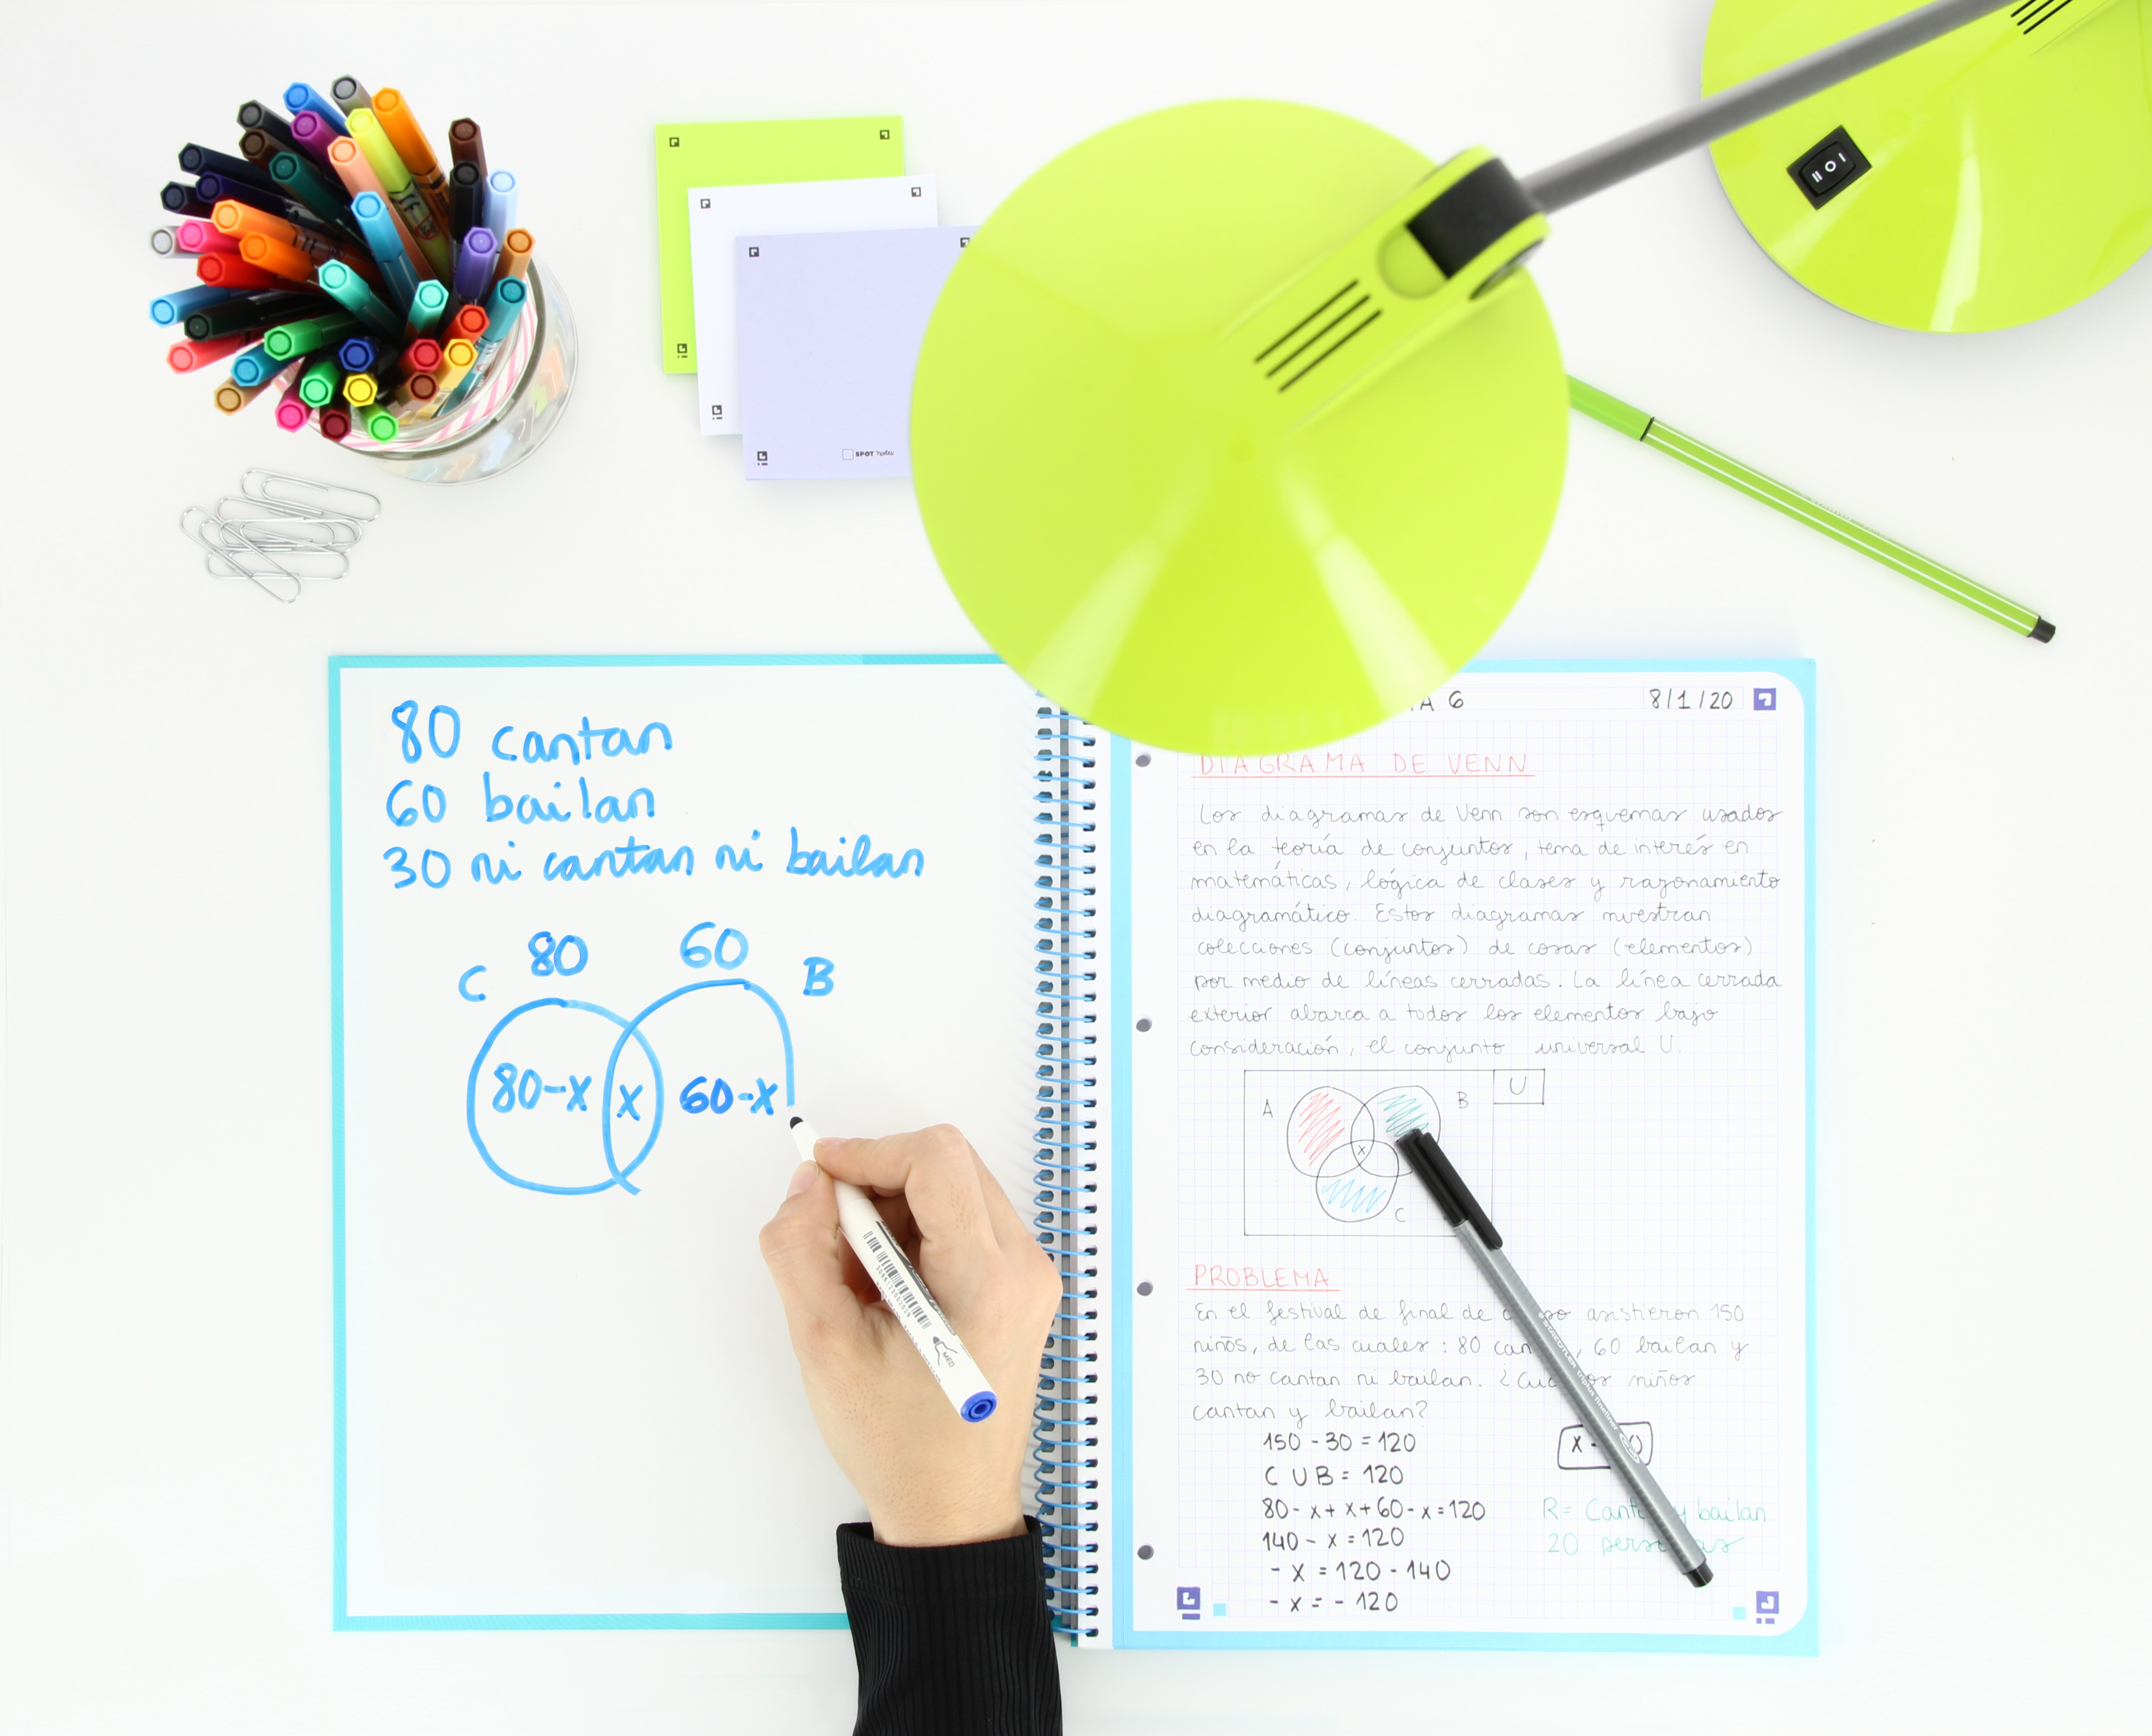 SPOT Notes
80 cantan
60 bailan
30 ni cantan ni bailan
80 60
C B
80-x x 60-x
MED
A 6 8/1/20
DIAGRAMA DE VENN
Los diagramas de Venn son esquemas usados
en la teoría de conjuntos, tema de interés en
matemáticas, lógica de clases y razonamiento
diagramático. Estos diagramas muestran
colecciones (conjuntos) de cosas (elementos)
por medio de líneas cerradas. La línea cerrada
exterior abarca a todos los elementos bajo
consideración, el conjunto universal U.
U
A B
x
C
PROBLEMA
En el festival de final de asistieron 150
niños, de las cuales: 80 can , 60 bailan y
30 no cantan ni bailan. ¿ niños
cantan y bailan?
150 - 30 = 120
C U B = 120
80 - x + x + 60 - x = 120
140 - x = 120
- x = 120 - 140
- x = - 120
x
R= y bailan
20